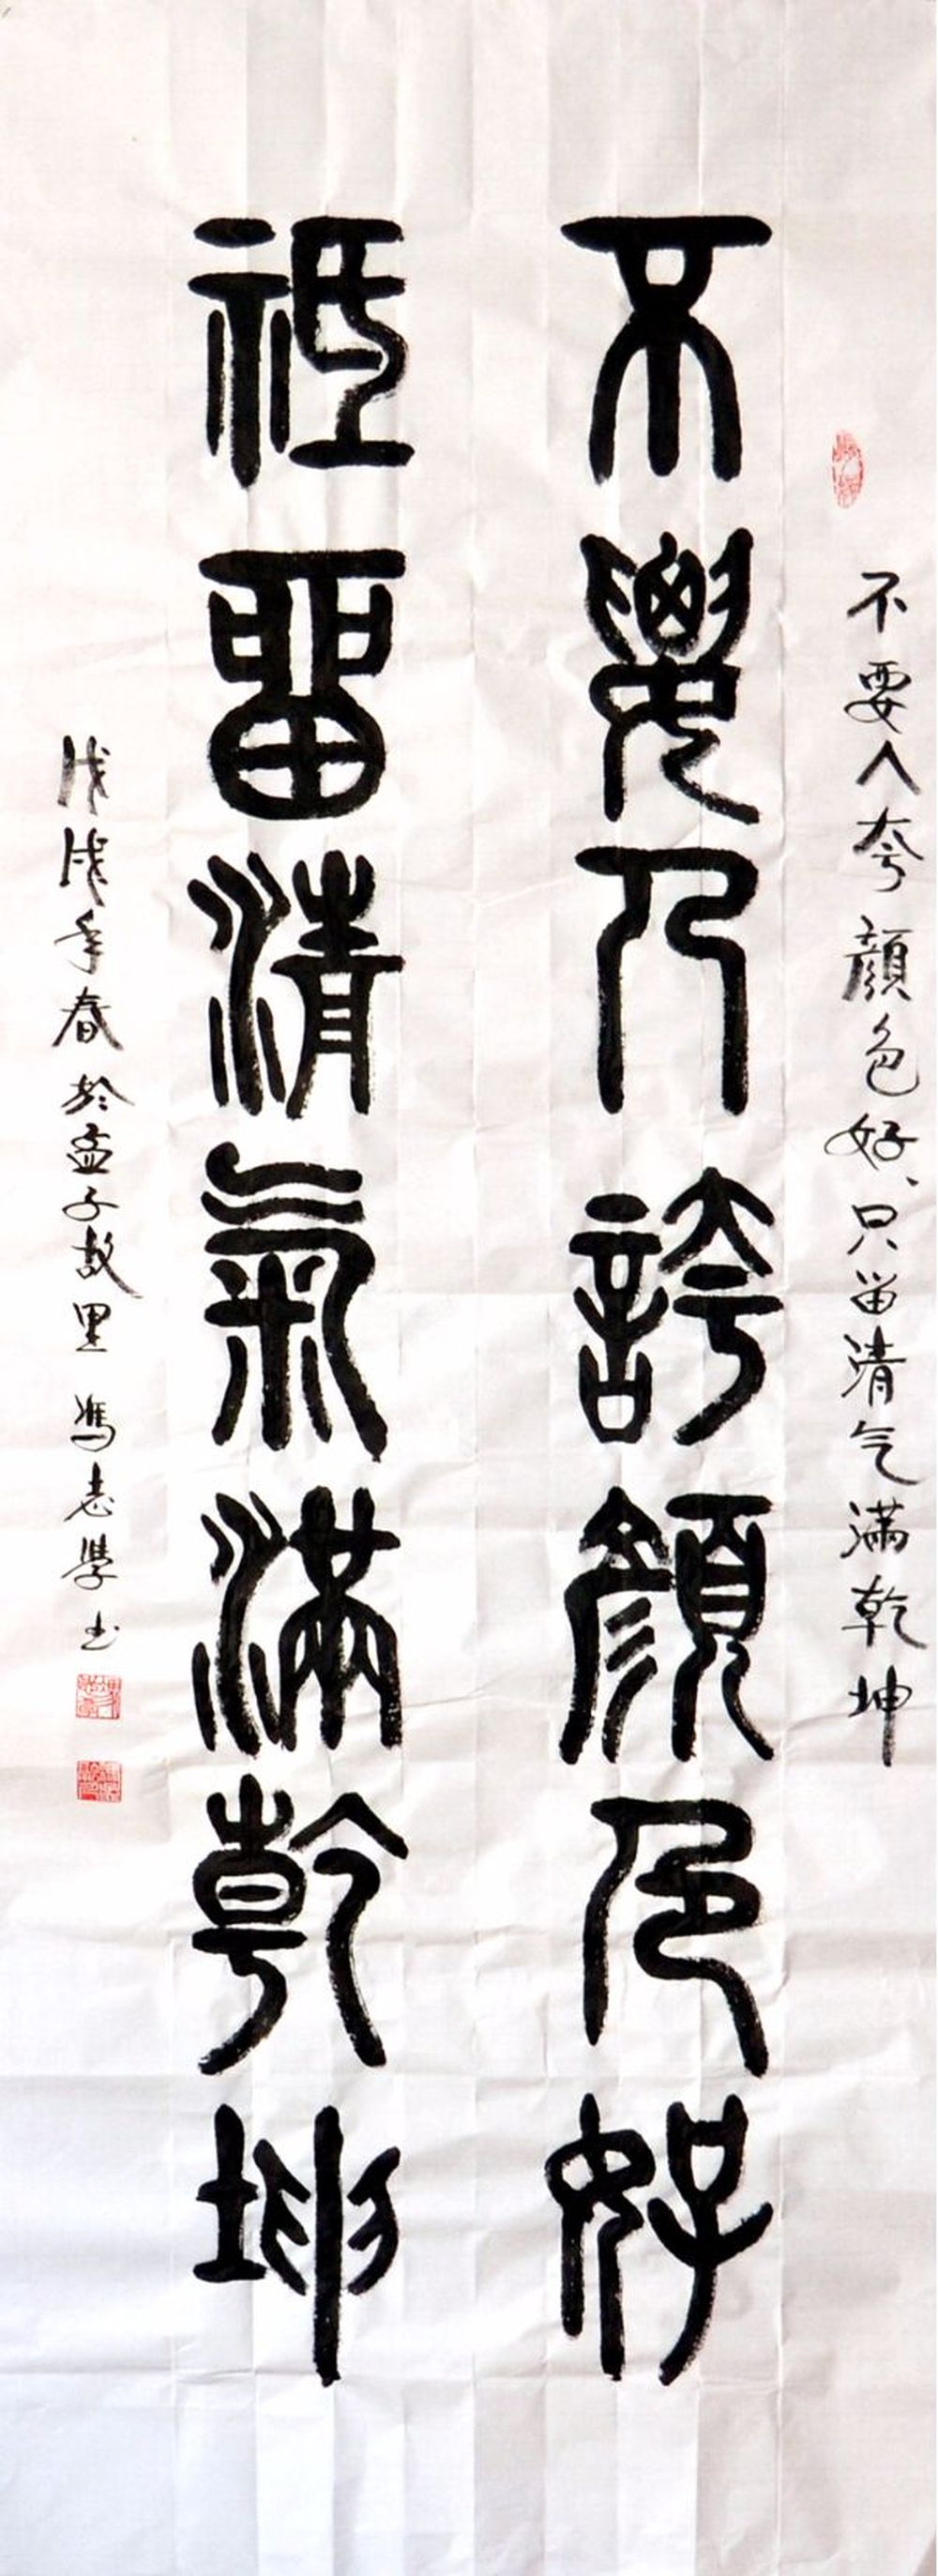 不要人夸颜色好、只留清气满乾坤
不要人誇顏色好
祇畱清氣滿乾坤
戊戌年春於孟子故里 馮志學书